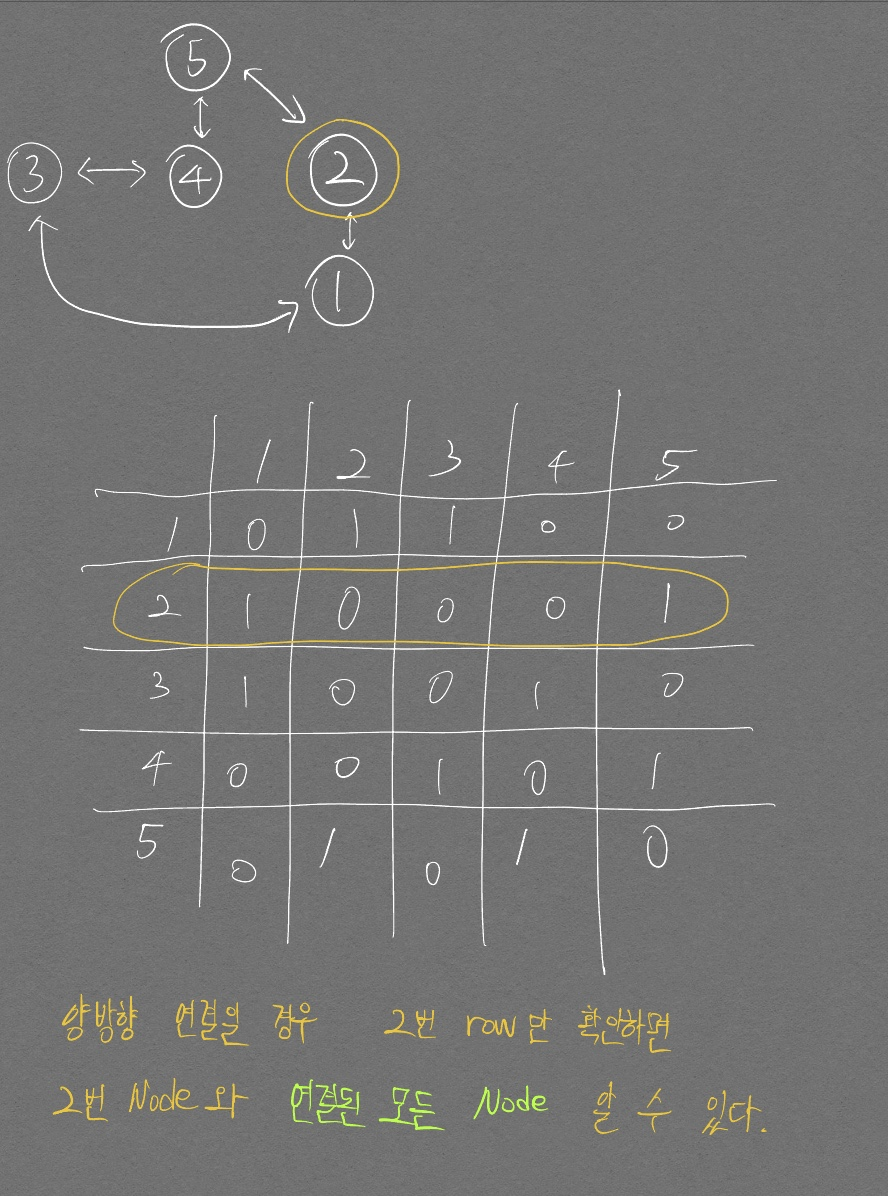 5
3 4 2
1
1 2 3 4 5
1 0 1 1 0 0
2 1 0 0 0 1
3 1 0 0 1 0
4 0 0 1 0 1
5 0 1 0 1 0
양방향 연결일 경우 2번 row만 확인하면
2번 Node와 연결된 모든 Node 알 수 있다.